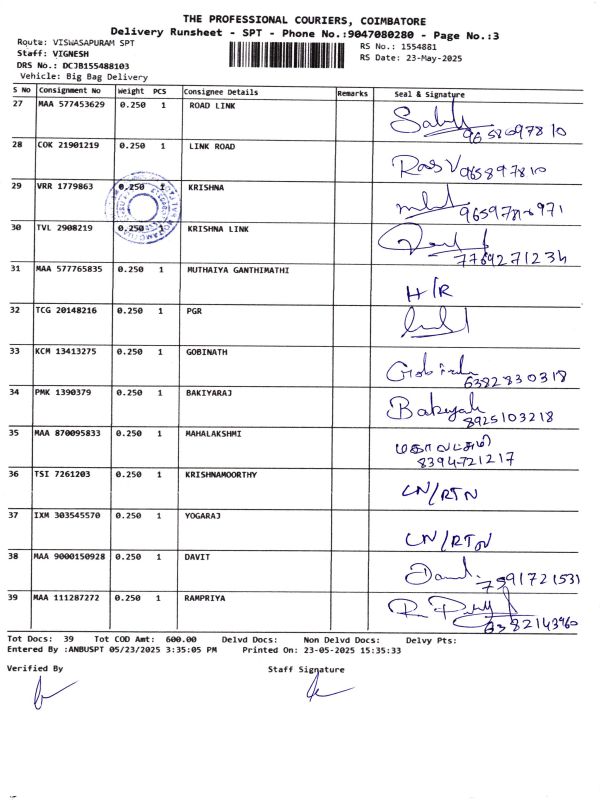 THE PROFESSIONAL COURIERS, COIMBATORE
Delivery Runsheet - SPT - Phone No.:9047080280 - Page No.:3
Route: VISWASAPURAM SPT
RS No.: 1554881
Staff: VIGNESH
RS Date: 23-May-2025
DRS No.: DCJB155488103
Vehicle: Big Bag Delivery
S No Consignment No Weight PCS Consignee Details Remarks Seal & Signature
27 MAA 577453629 0.250 1 ROAD LINK
9658697810
28 COK 21901219 0.250 1 LINK ROAD
965897810
29 VRR 1779863 0.250 1 KRISHNA
30 TVL 2908219 0.250 1 KRISHNA LINK
7769271234
31 MAA 577765835 0.250 1 MUTHAIYA GANTHIMATHI
H/R
32 TCG 20148216 0.250 1 PGR
33 KCM 13413275 0.250 1 GOBINATH
6382830318
34 PMK 1390379 0.250 1 BAKIYARAJ
8925103218
35 MAA 870095833 0.250 1 MAHALAKSHMI
மகாலட்சுமி
8394721217
36 TSI 7261203 0.250 1 KRISHNAMOORTHY
LN/RTN
37 IXM 303545570 0.250 1 YOGARAJ
LN/RTN
38 MAA 9000150928 0.250 1 DAVIT
7591721531
39 MAA 111287272 0.250 1 RAMPRIYA
6382143960
Tot Docs: 39 Tot COD Amt: 600.00 Delvd Docs: Non Delvd Docs: Delvy Pts:
Entered By :ANBUSPT 05/23/2025 3:35:05 PM Printed On: 23-05-2025 15:35:33
Verified By Staff Signature